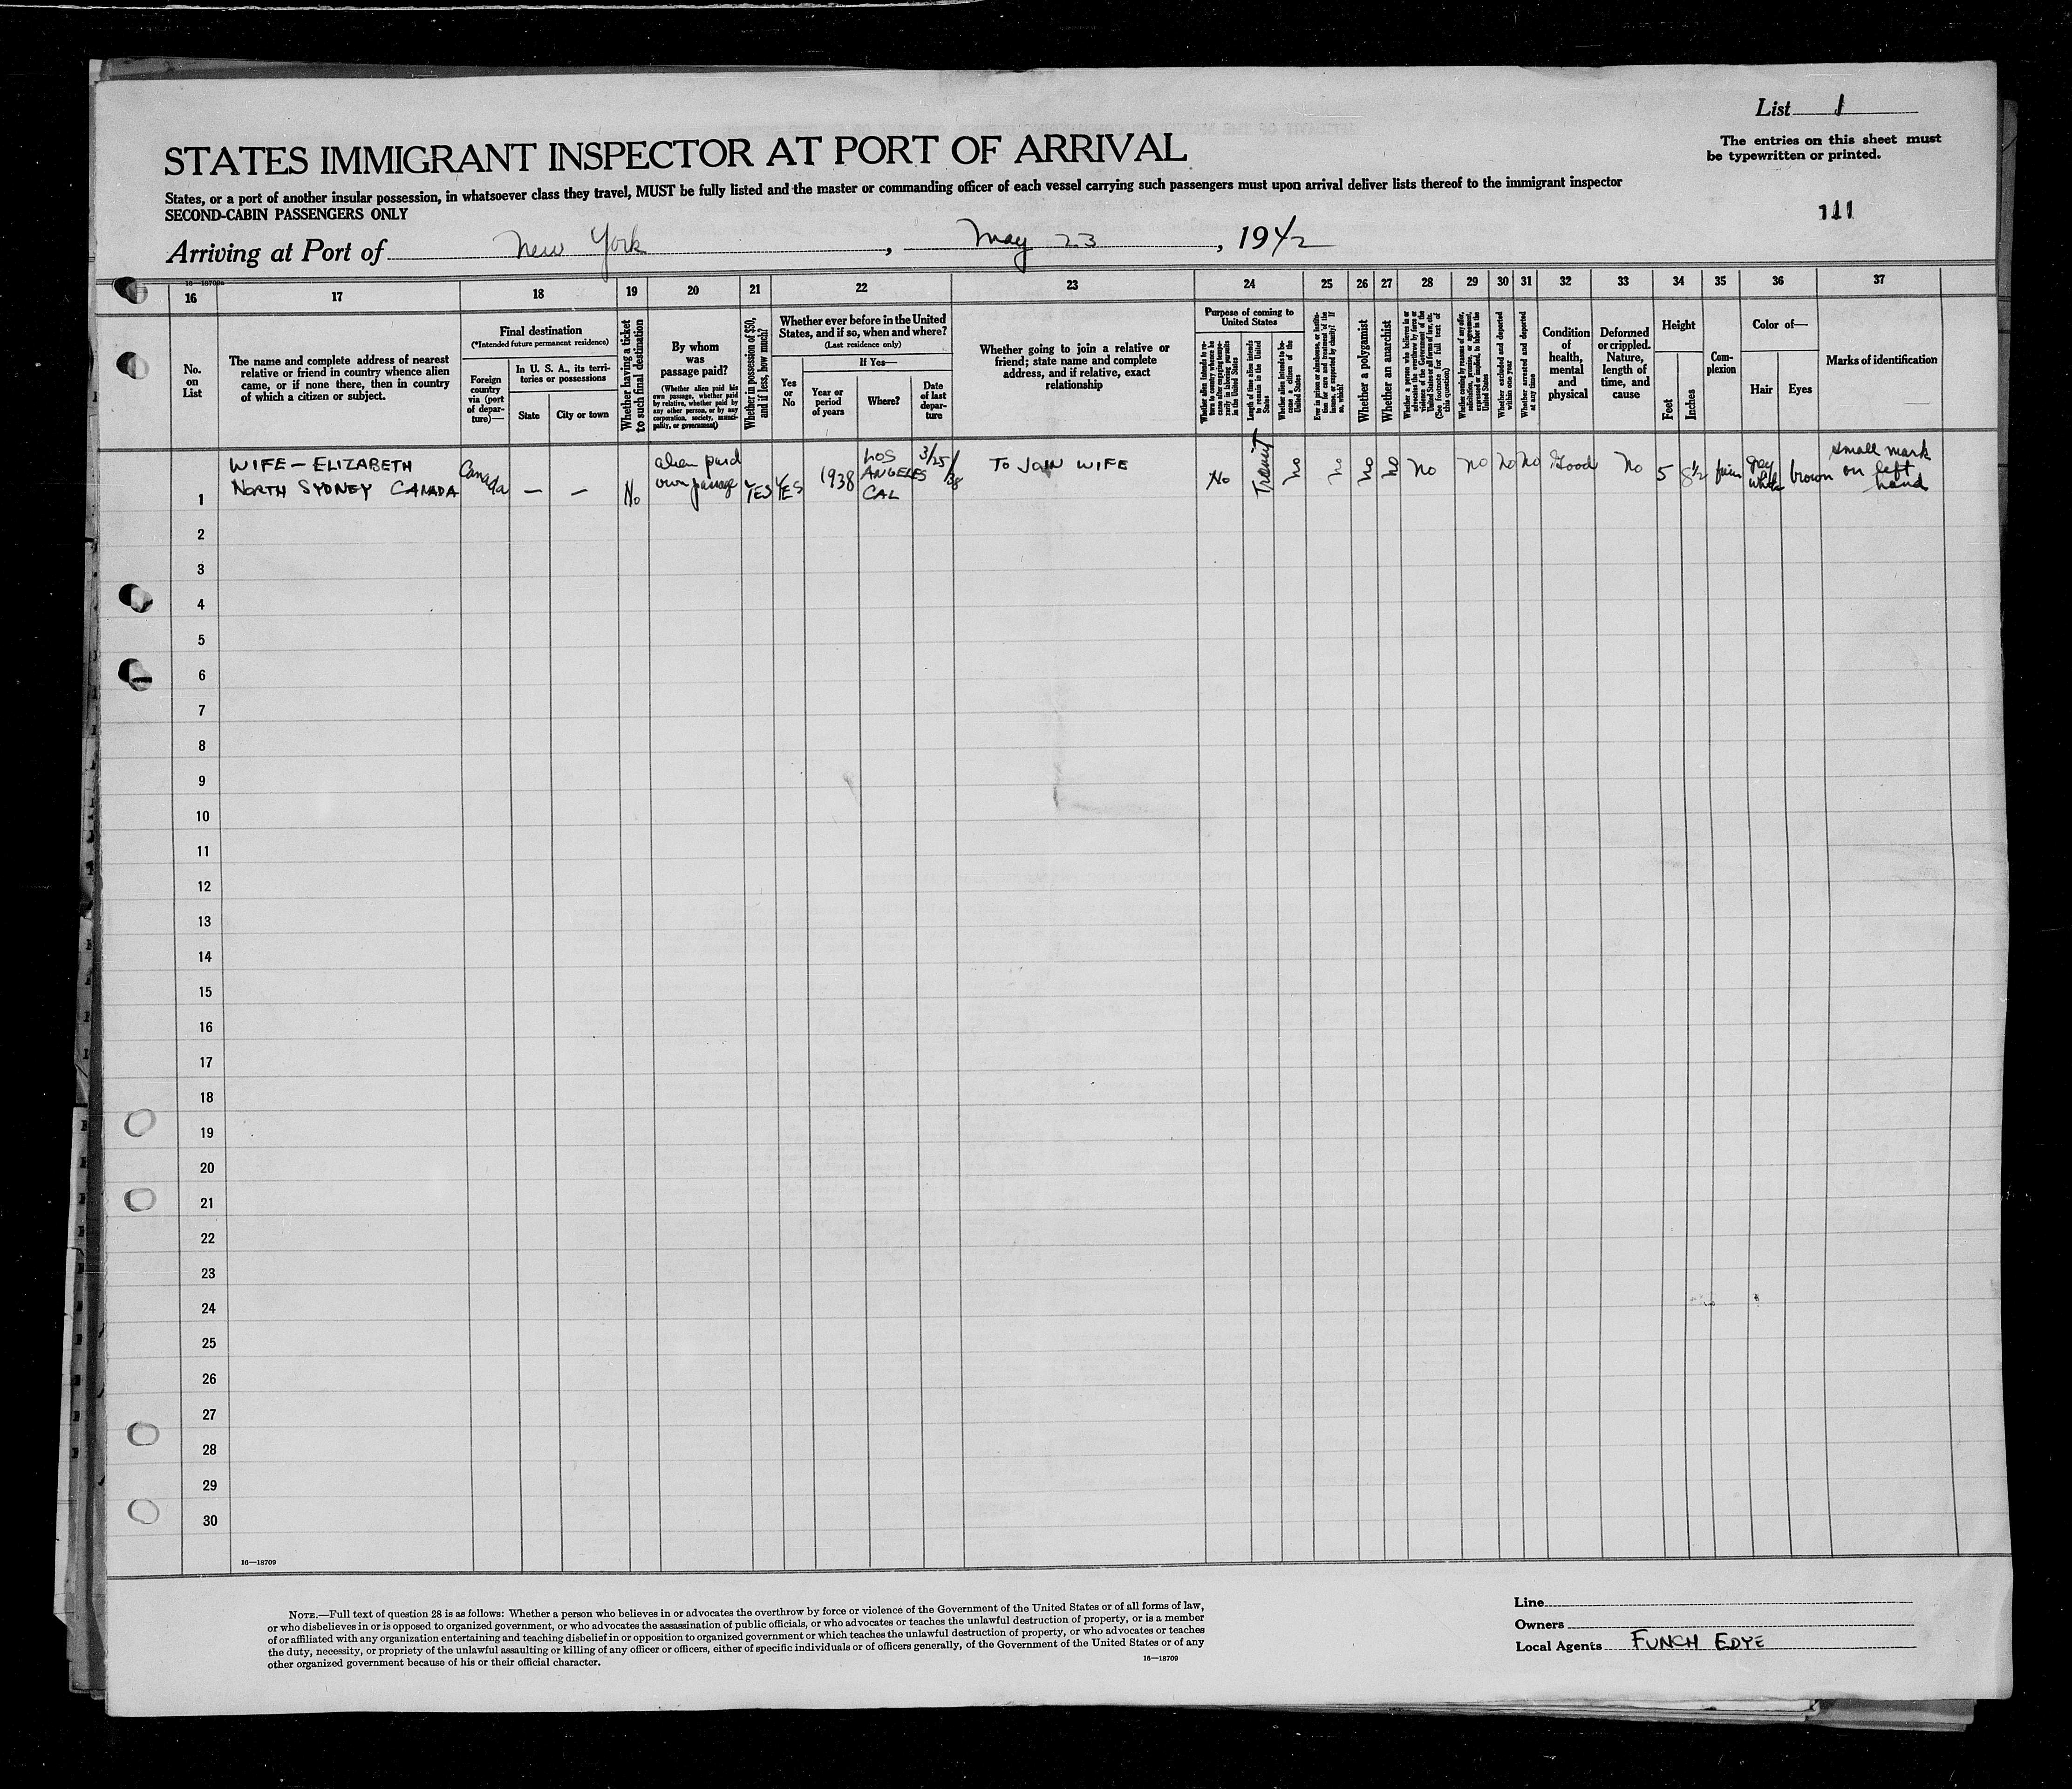 List 1
The entries on this sheet must
be typewritten or printed.
STATES IMMIGRANT INSPECTOR AT PORT OF ARRIVAL
States, or a port of another insular possession, in whatsoever class they travel, MUST be fully listed and the master or commanding officer of each vessel carrying such passengers must upon arrival deliver lists thereof to the immigrant inspector
SECOND-CABIN PASSENGERS ONLY
111
Arriving at Port of New York, May 23, 1942
16—18709a
16 17 18 19 20 21 22 23 24 25 26 27 28 29 30 31 32 33 34 35 36 37
No.
on
List
The name and complete address of nearest
relative or friend in country whence alien
came, or if none there, then in country
of which a citizen or subject.
Final destination
(*Intended future permanent residence)
Foreign
country
via (port
of depar-
ture)—
In U. S. A., its terri-
tories or possessions
State
City or town
Whether having a ticket
to such final destination
By whom
was
passage paid?
(Whether alien paid his
own passage, whether paid
by relative, whether paid by
any other person, or by any
corporation, society, munici-
pality, or government)
Whether in possession of $50,
and if less, how much?
Whether ever before in the United
States, and if so, when and where?
(Last residence only)
Yes
or
No
If Yes—
Year or
period
of years
Where?
Date
of last
depar-
ture
Whether going to join a relative or
friend; state name and complete
address, and if relative, exact
relationship
Purpose of coming to
United States
Whether alien intends to re-
turn to country whence he
came after engaging tempo-
rarily in laboring pursuits
in the United States
Length of time alien intends
to remain in the United
States
Whether alien intends to be-
come a citizen of the
United States
Ever in prison or almshouse, or institu-
tion for care and treatment of the
insane, or supported by charity? If
so, which?
Whether a polygamist
Whether an anarchist
Whether a person who believes in or
advocates the overthrow by force or
violence of the Government of the
United States or all forms of law, etc.
(See footnote for full text of
this question)
Whether coming by reasons of any offer,
solicitation, promise, or agreement,
expressed or implied, to labor in the
United States
Whether excluded and deported
within one year
Whether arrested and deported
at any time
Condition
of
health,
mental
and
physical
Deformed
or crippled.
Nature,
length of
time, and
cause
Height
Feet
Inches
Com-
plexion
Color of—
Hair
Eyes
Marks of identification
WIFE — ELIZABETH
NORTH SYDNEY CANADA
Canada
—
—
No
alien paid
own passage
YES
YES
1938
LOS
ANGELES
CAL
3/25/
38
TO JOIN WIFE
No
Transit
no
no
no
no
no
no
no
no
Good
no
5
8½
fair
grey
white
brown
small mark
on left
hand
1
2
3
4
5
6
7
8
9
10
11
12
13
14
15
16
17
18
19
20
21
22
23
24
25
26
27
28
29
30
16—18709
NOTE.—Full text of question 28 is as follows: Whether a person who believes in or advocates the overthrow by force or violence of the Government of the United States or of all forms of law,
or who disbelieves in or is opposed to organized government, or who advocates the assassination of public officials, or who advocates or teaches the unlawful destruction of property, or is a member
of or affiliated with any organization entertaining and teaching disbelief in or opposition to organized government or which teaches the unlawful destruction of property, or who advocates or teaches
the duty, necessity, or propriety of the unlawful assaulting or killing of any officer or officers, either of specific individuals or of officers generally, of the Government of the United States or of any
other organized government because of his or their official character.
16—18709
Line
Owners
Local Agents FUNCH EDYE